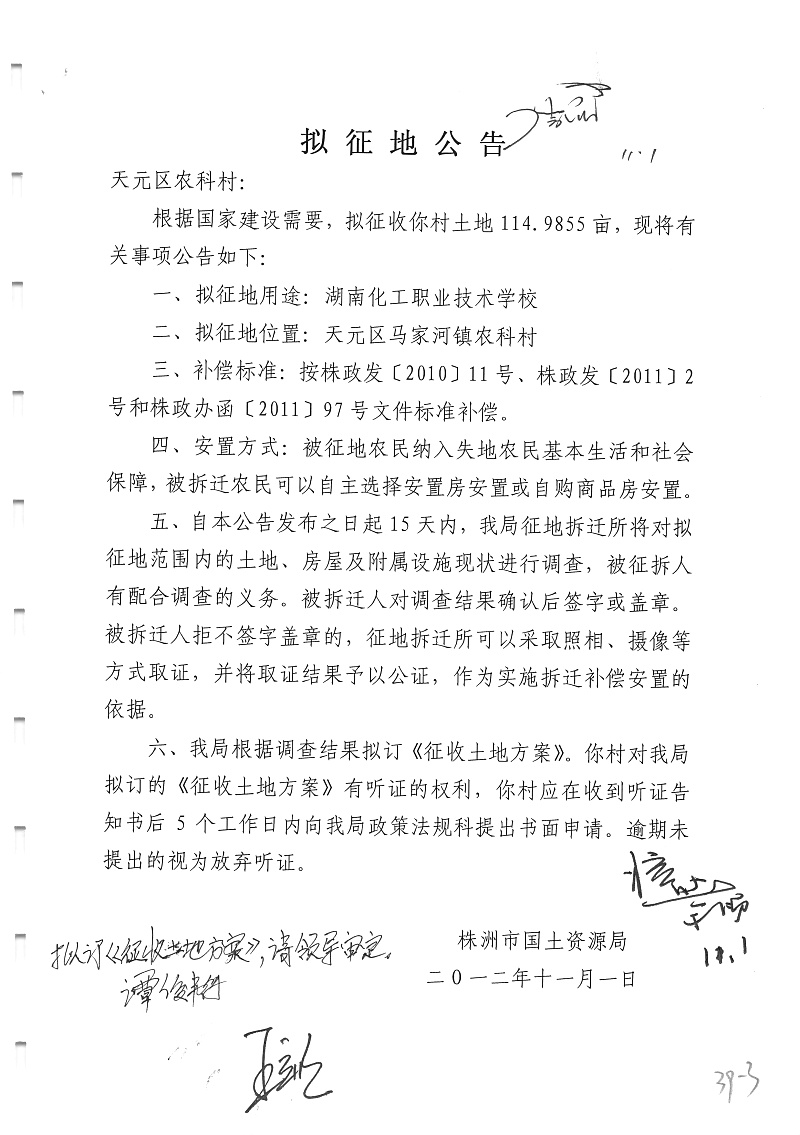 拟征地公告
11.1
天元区农科村：
根据国家建设需要，拟征收你村土地 114.9855 亩，现将有
关事项公告如下：
一、拟征地用途：湖南化工职业技术学校
二、拟征地位置：天元区马家河镇农科村
三、补偿标准：按株政发〔2010〕11 号、株政发〔2011〕2
号和株政办函〔2011〕97 号文件标准补偿。
四、安置方式：被征地农民纳入失地农民基本生活和社会
保障，被拆迁农民可以自主选择安置房安置或自购商品房安置。
五、自本公告发布之日起 15 天内，我局征地拆迁所将对拟
征地范围内的土地、房屋及附属设施现状进行调查，被征拆人
有配合调查的义务。被拆迁人对调查结果确认后签字或盖章。
被拆迁人拒不签字盖章的，征地拆迁所可以采取照相、摄像等
方式取证，并将取证结果予以公证，作为实施拆迁补偿安置的
依据。
六、我局根据调查结果拟订《征收土地方案》。你村对我局
拟订的《征收土地方案》有听证的权利，你村应在收到听证告
知书后 5 个工作日内向我局政策法规科提出书面申请。逾期未
提出的视为放弃听证。
株洲市国土资源局
二〇一二年十一月一日
11.1
拟订《征收土地方案》，请领导审定。
39-3